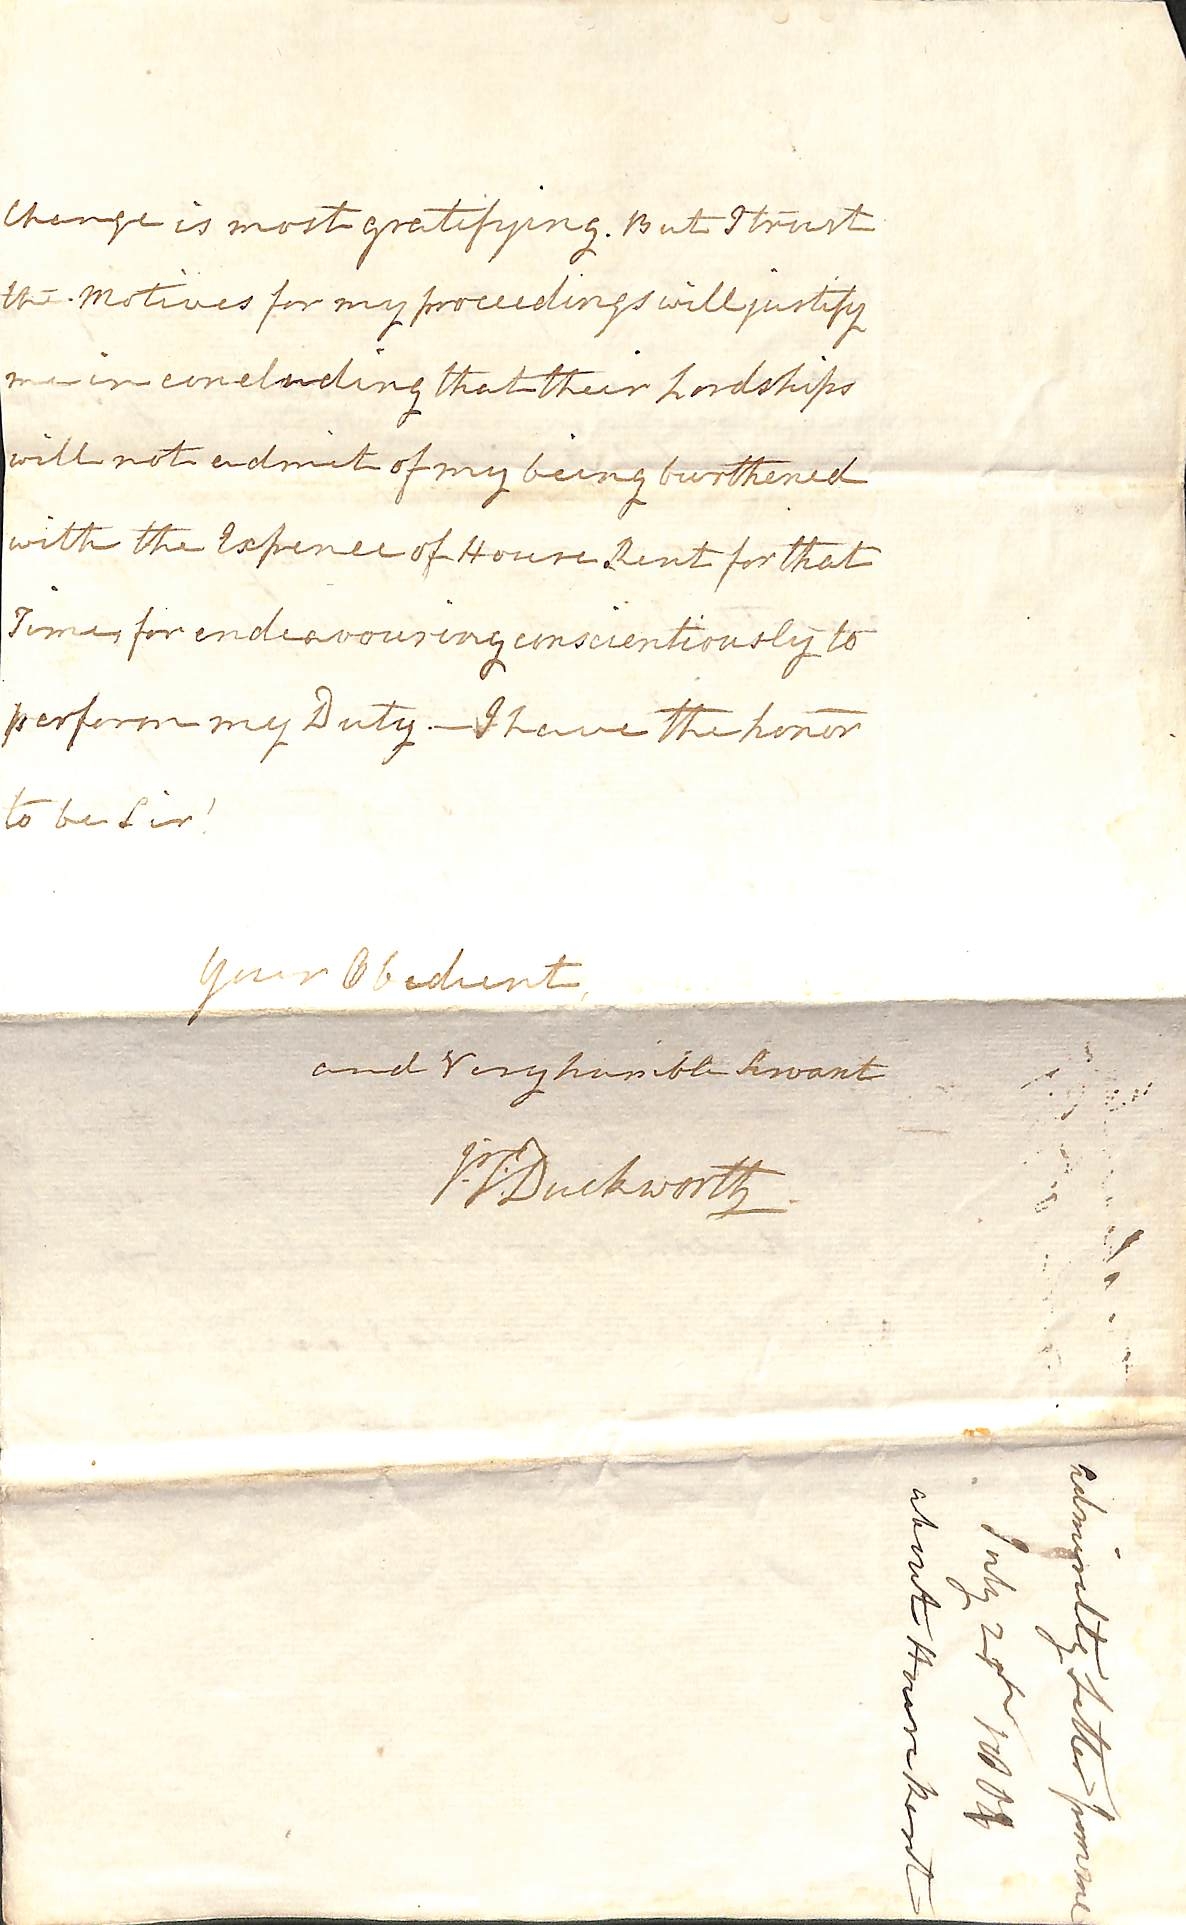 Change is most gratifying. But I trust
the Motives for my proceedings will justify
me in concluding that their Lordships
will not admit of my being burthened
with the Expence of House Rent for that
Time, for endeavouring conscientiously to
perform my Duty. — I have the honor
to be Sir!
Your Obedient,
and Very humble Servant
J. T. Duckworth
Admiralty Letter from me
July
about House Rent